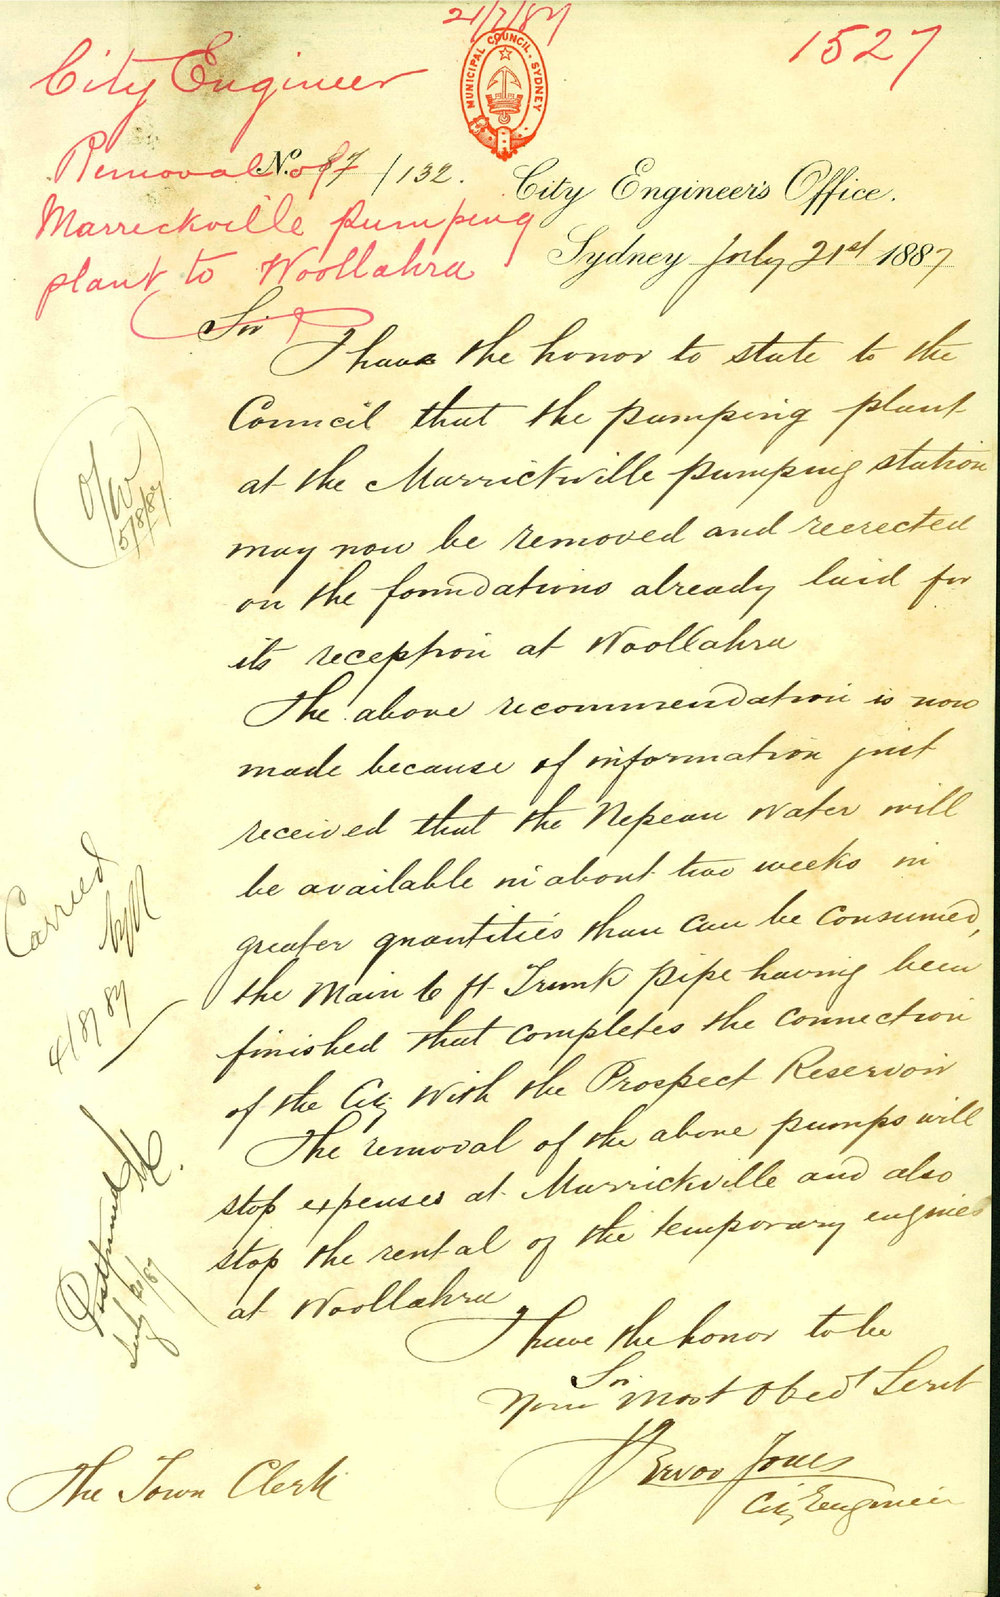 21/7/87
1527
City Engineer
MUNICIPAL COUNCIL. SYDNEY
Removal of
Marrickville pumping
plant to Woollahra
No. 87/132.
City Engineer's Office.
Sydney July 21st 1887
Sir
I have the honor to state to the
Council that the pumping plant
at the Marrickville pumping station
may now be removed and reerected
on the foundations already laid for
its reception at Woollahra
The above recommendation is now
made because of information just
received that the Nepean Water will
be available in about two weeks in
greater quantities than can be consumed,
the Main 6 ft. Trunk pipe having been
finished that completes the connection
of the City with the Prospect Reservoir
The removal of the above pumps will
stop expenses at Marrickville and also
stop the rental of the temporary engines
at Woollahra
I have the honor to be
Sir
Your Most Obedt Servt
Trevor Jones
City Engineer
The Town Clerk
5/8/87.
Carried
4/8/87
Postponed
July /87